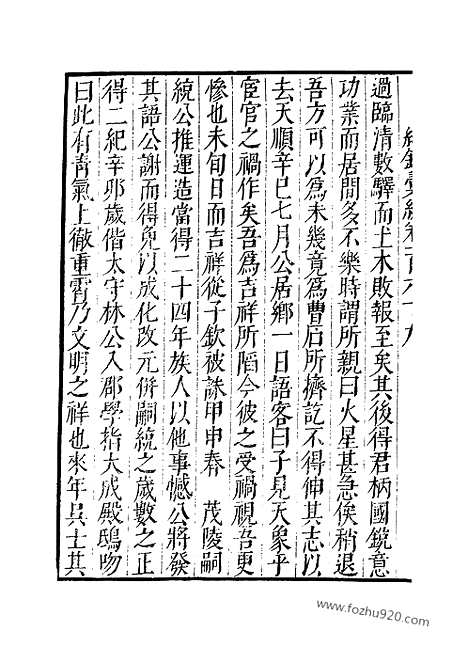 紀錄彙編卷一百六十九
過臨清數驛而土木敗報至矣其後得君柄國鏡意
功業而居間多不樂時謂所親曰火星甚急俟稍退
吾方可以爲未幾竟爲曹石所擠訖不得伸其志以
去天順辛巳七月公居鄉一日語客曰子見天象乎
宦官之禍作矣吾爲吉祥所䧟今彼之受禍視吾更
慘也未旬日而吉祥從子欽被誅甲申春 茂陵嗣
統公推運造當得二十四年族人以他事憾公將發
其語公謝而得免以成化改元倂嗣統之歲數之正
得二紀辛卯歲偕太守林公入郡學指大成殿鴟吻
曰此有青氣上徹重霄乃文明之祥也來年吳士其
www.fozhu920.com